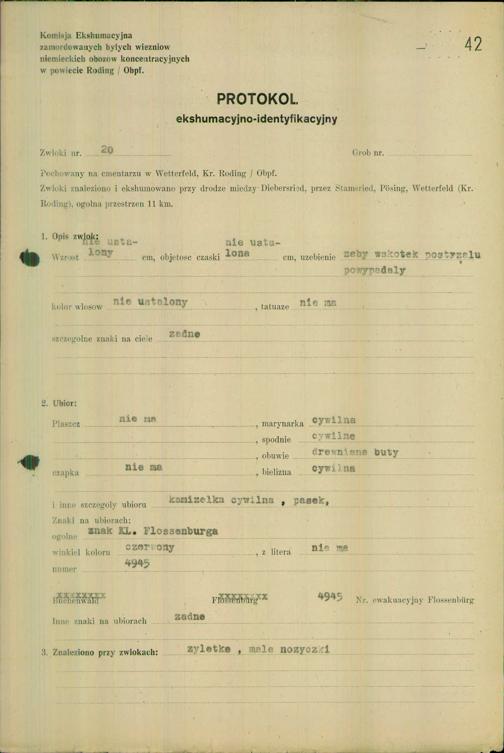 Komisja Ekshumacyjna
zamordowanych byłych wiezniow
niemieckich obozow koncentracyjnych
w powiecie Roding / Obpf.
42
PROTOKOL
ekshumacyjno-identyfikacyjny
Zwloki nr. 20 Grob nr.
Pochowany na cmentarzu w Wetterfeld, Kr. Roding / Obpf.
Zwloki znaleziono i ekshumowano przy drodze miedzy Diebersried, przez Stamsried, Pösing, Wetterfeld (Kr.
Roding), ogolna przestrzen 11 km.
1. Opis zwlok:
nie usta- nie usta-
Wzrost lony cm, objetosc czaski lona cm, uzebienie zeby wskotek postrzalu
powypadaly
kolor wlosow nie ustalony , tatuaze nie ma
szczegolne znaki na ciele zadne
2. Ubior:
Plaszcz nie ma , marynarka cywilna
, spodnie cywilne
, obuwie drewniane buty
czapka nie ma , bielizna cywilna
i inne szczegoly ubioru kamizelka cywilna , pasek,
Znaki na ubiorach:
ogolne znak KL. Flossenburga
winkiel koloru czerwony , z litera nie ma
numer 4945
xxxxxxxx xxxxxxxx
Buchenwald Flossenbürg 4945 Nr. ewakuacyjny Flossenbürg
Inne znaki na ubiorach zadne
3. Znaleziono przy zwlokach: zyletke , male nozyczki